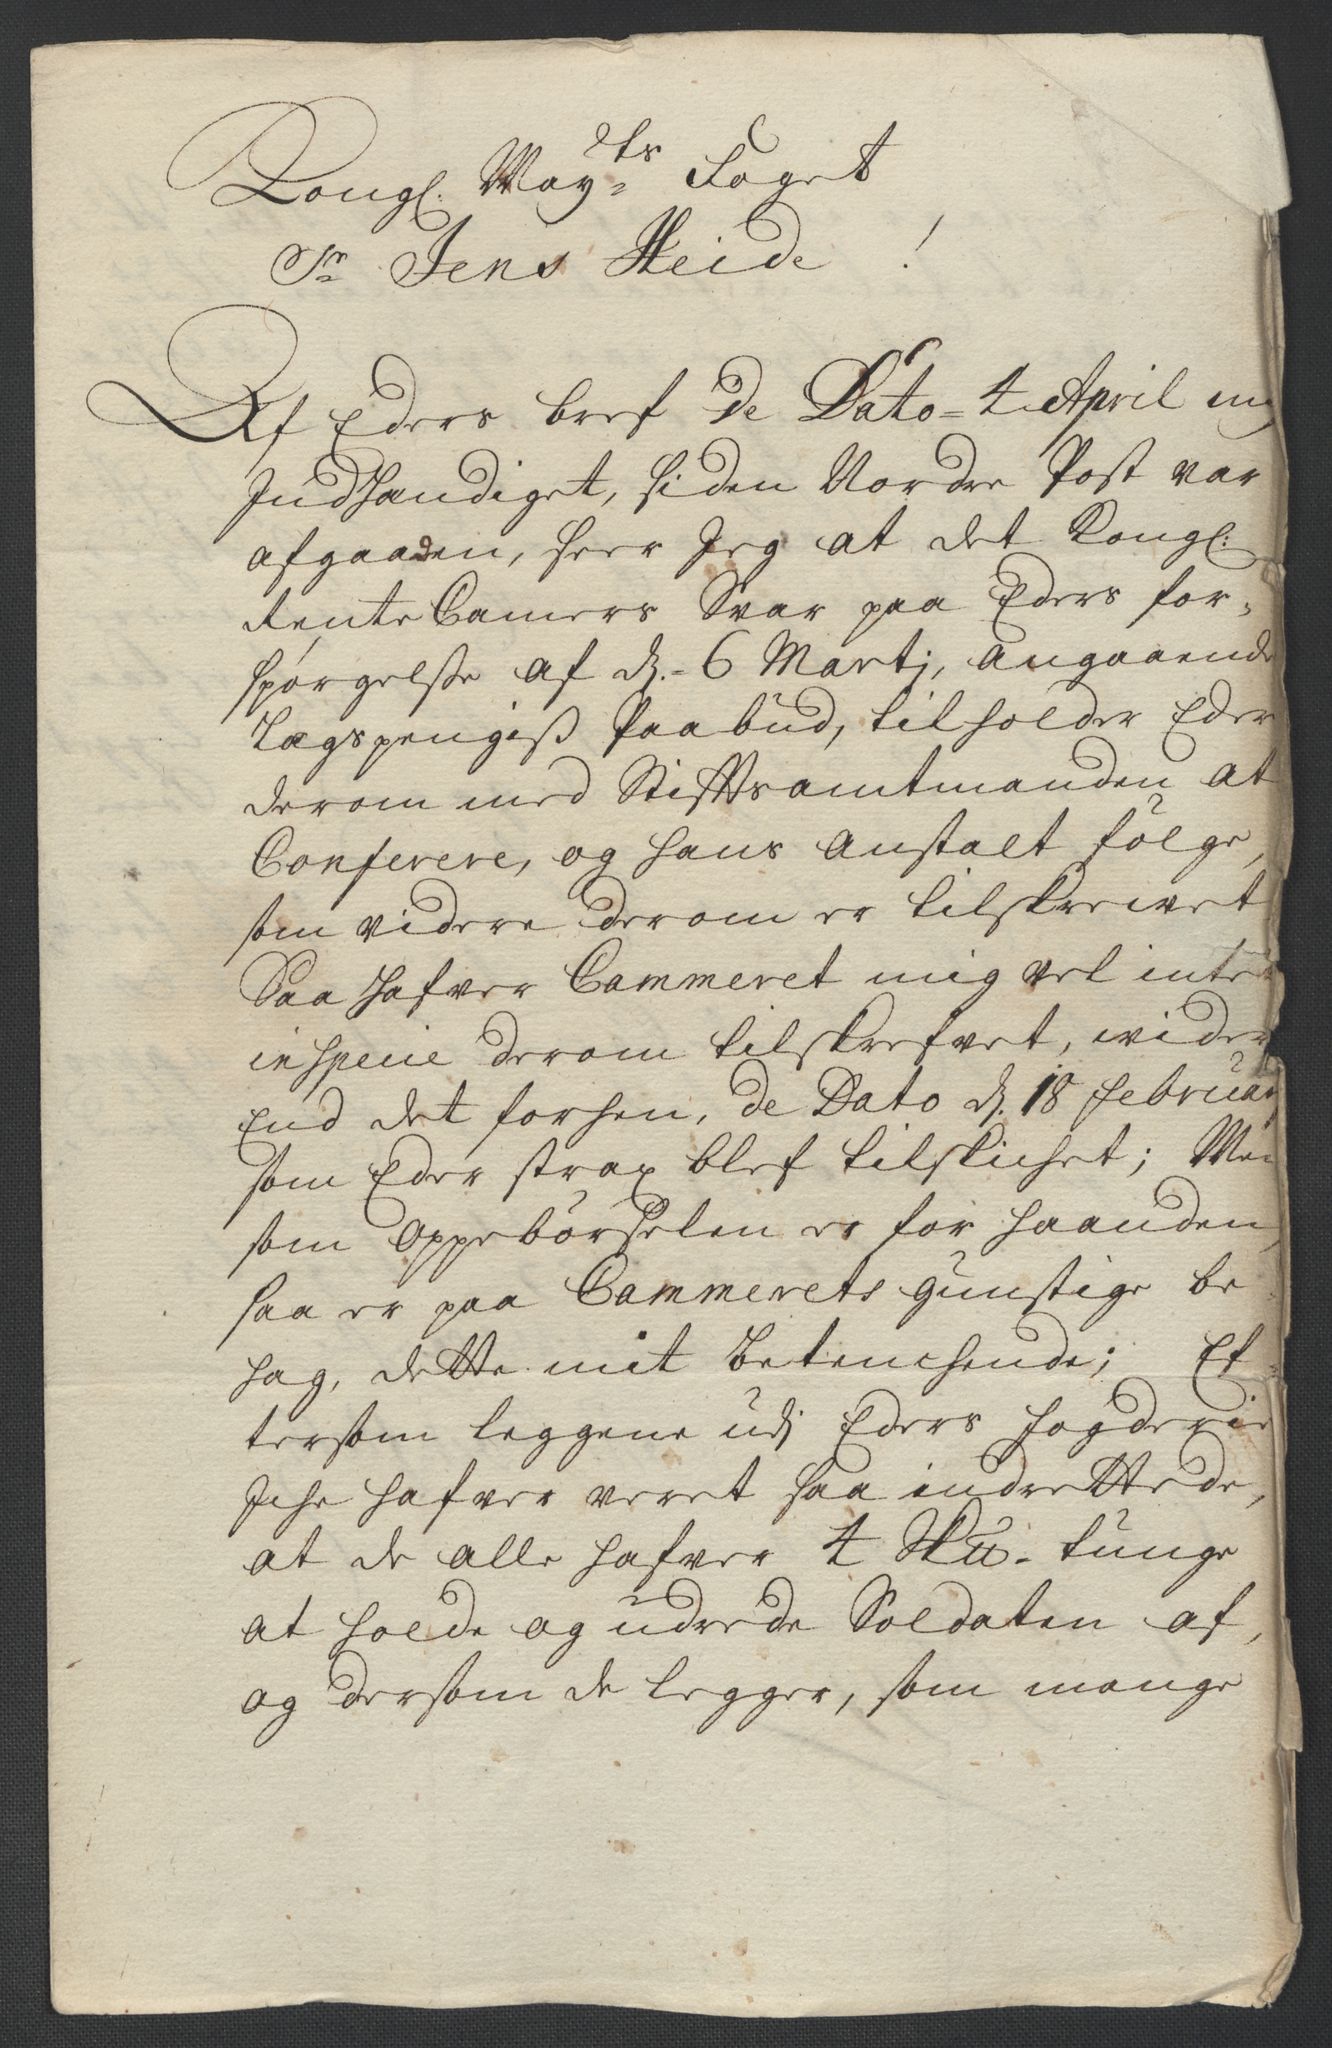 Kongl. May:ts Foget
Sr Jens Heide!
Af Eders bref de Dato = 4 April mig
Indhændiget, siden Nordre Post var
afgaaden, seer Jeg at det Kongl:
RenteCamers Svar paa Eders for-
spørgelse af d. = 6 Martj, angaaende
Lægspengiß Paabud, tilholder Eder
derom med Stifftsamtmanden at
Conferere, og hans anstalt følge,
som videre derom er tilskrewet
Saa hafver Cammeret mig vel intet
in specie derom tilskrefvet, wider
End det forhen, de Dato d. 18 februar
som Eder strax blef tilskichet; Men
som oppebørselen er for haanden,
saa er paa Cammerets gunstige be-
hag, dette mit betenchende; Ef-
tersom leggene udj Eders fogderie
Iche hafver veret saa indrettede,
at de alle hafver 4 Skt. tunge
at holde og udrede Soldaten af,
og dersom de legger, som mange